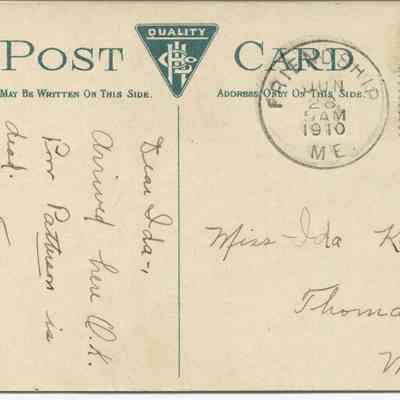 POST CARD
QUALITY
MAY BE WRITTEN ON THIS SIDE.
ADDRESS ONLY ON THIS SIDE.
FRIENDSHIP
JUN
28
5AM
1910
ME.
Dear Ida-,
Arrived here O.K.
Poor Patterson is
dead.
Miss Ida K
Thoma